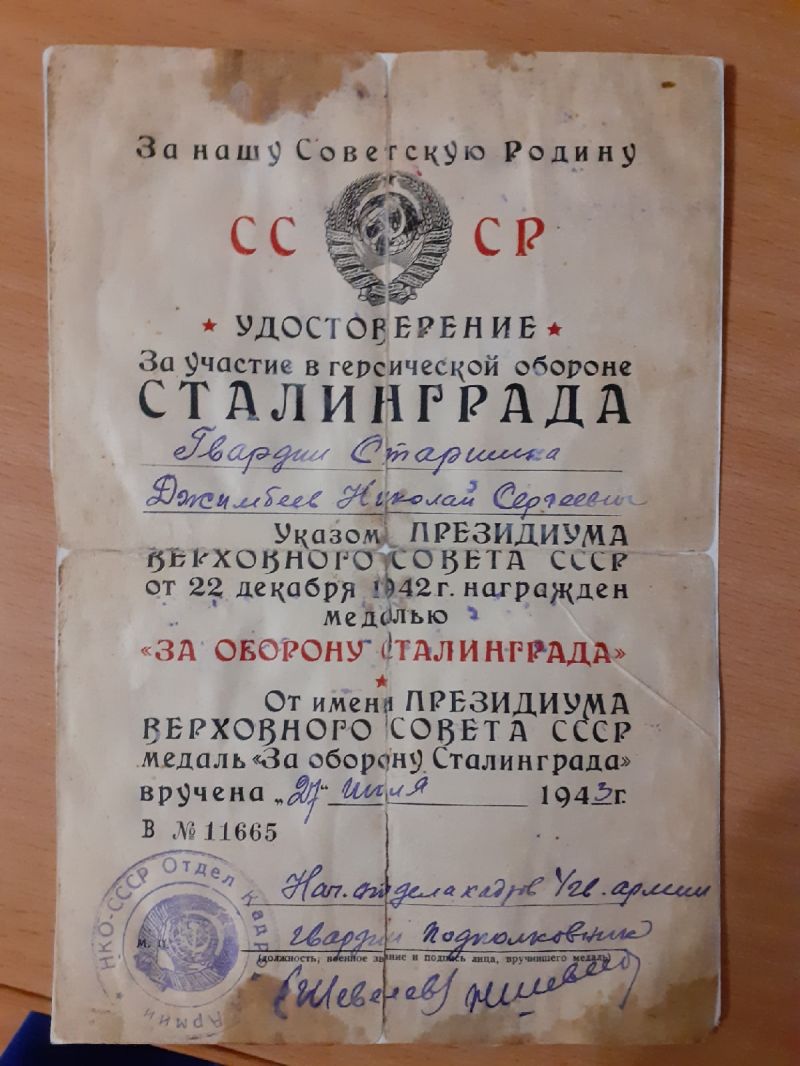 За нашу Советскую Родину
СС СР
УДОСТОВЕРЕНИЕ
За участие в героической обороне
СТАЛИНГРАДА
Гвардии Старшина
Джимбеев Николай Сергеевич
Указом ПРЕЗИДИУМА
ВЕРХОВНОГО СОВЕТА СССР
от 22 декабря 1942 г. награжден
медалью
«ЗА ОБОРОНУ СТАЛИНГРАДА»
От имени ПРЕЗИДИУМА
ВЕРХОВНОГО СОВЕТА СССР
медаль «За оборону Сталинграда»
вручена „27“ июля 1943 г.
В № 11665
Нач. отдела кадров гв. армии
М. П. гвардии подполковник
(должность, военное звание и подпись лица, вручившего медаль)
НКО-СССР Отдел Кадров Армии